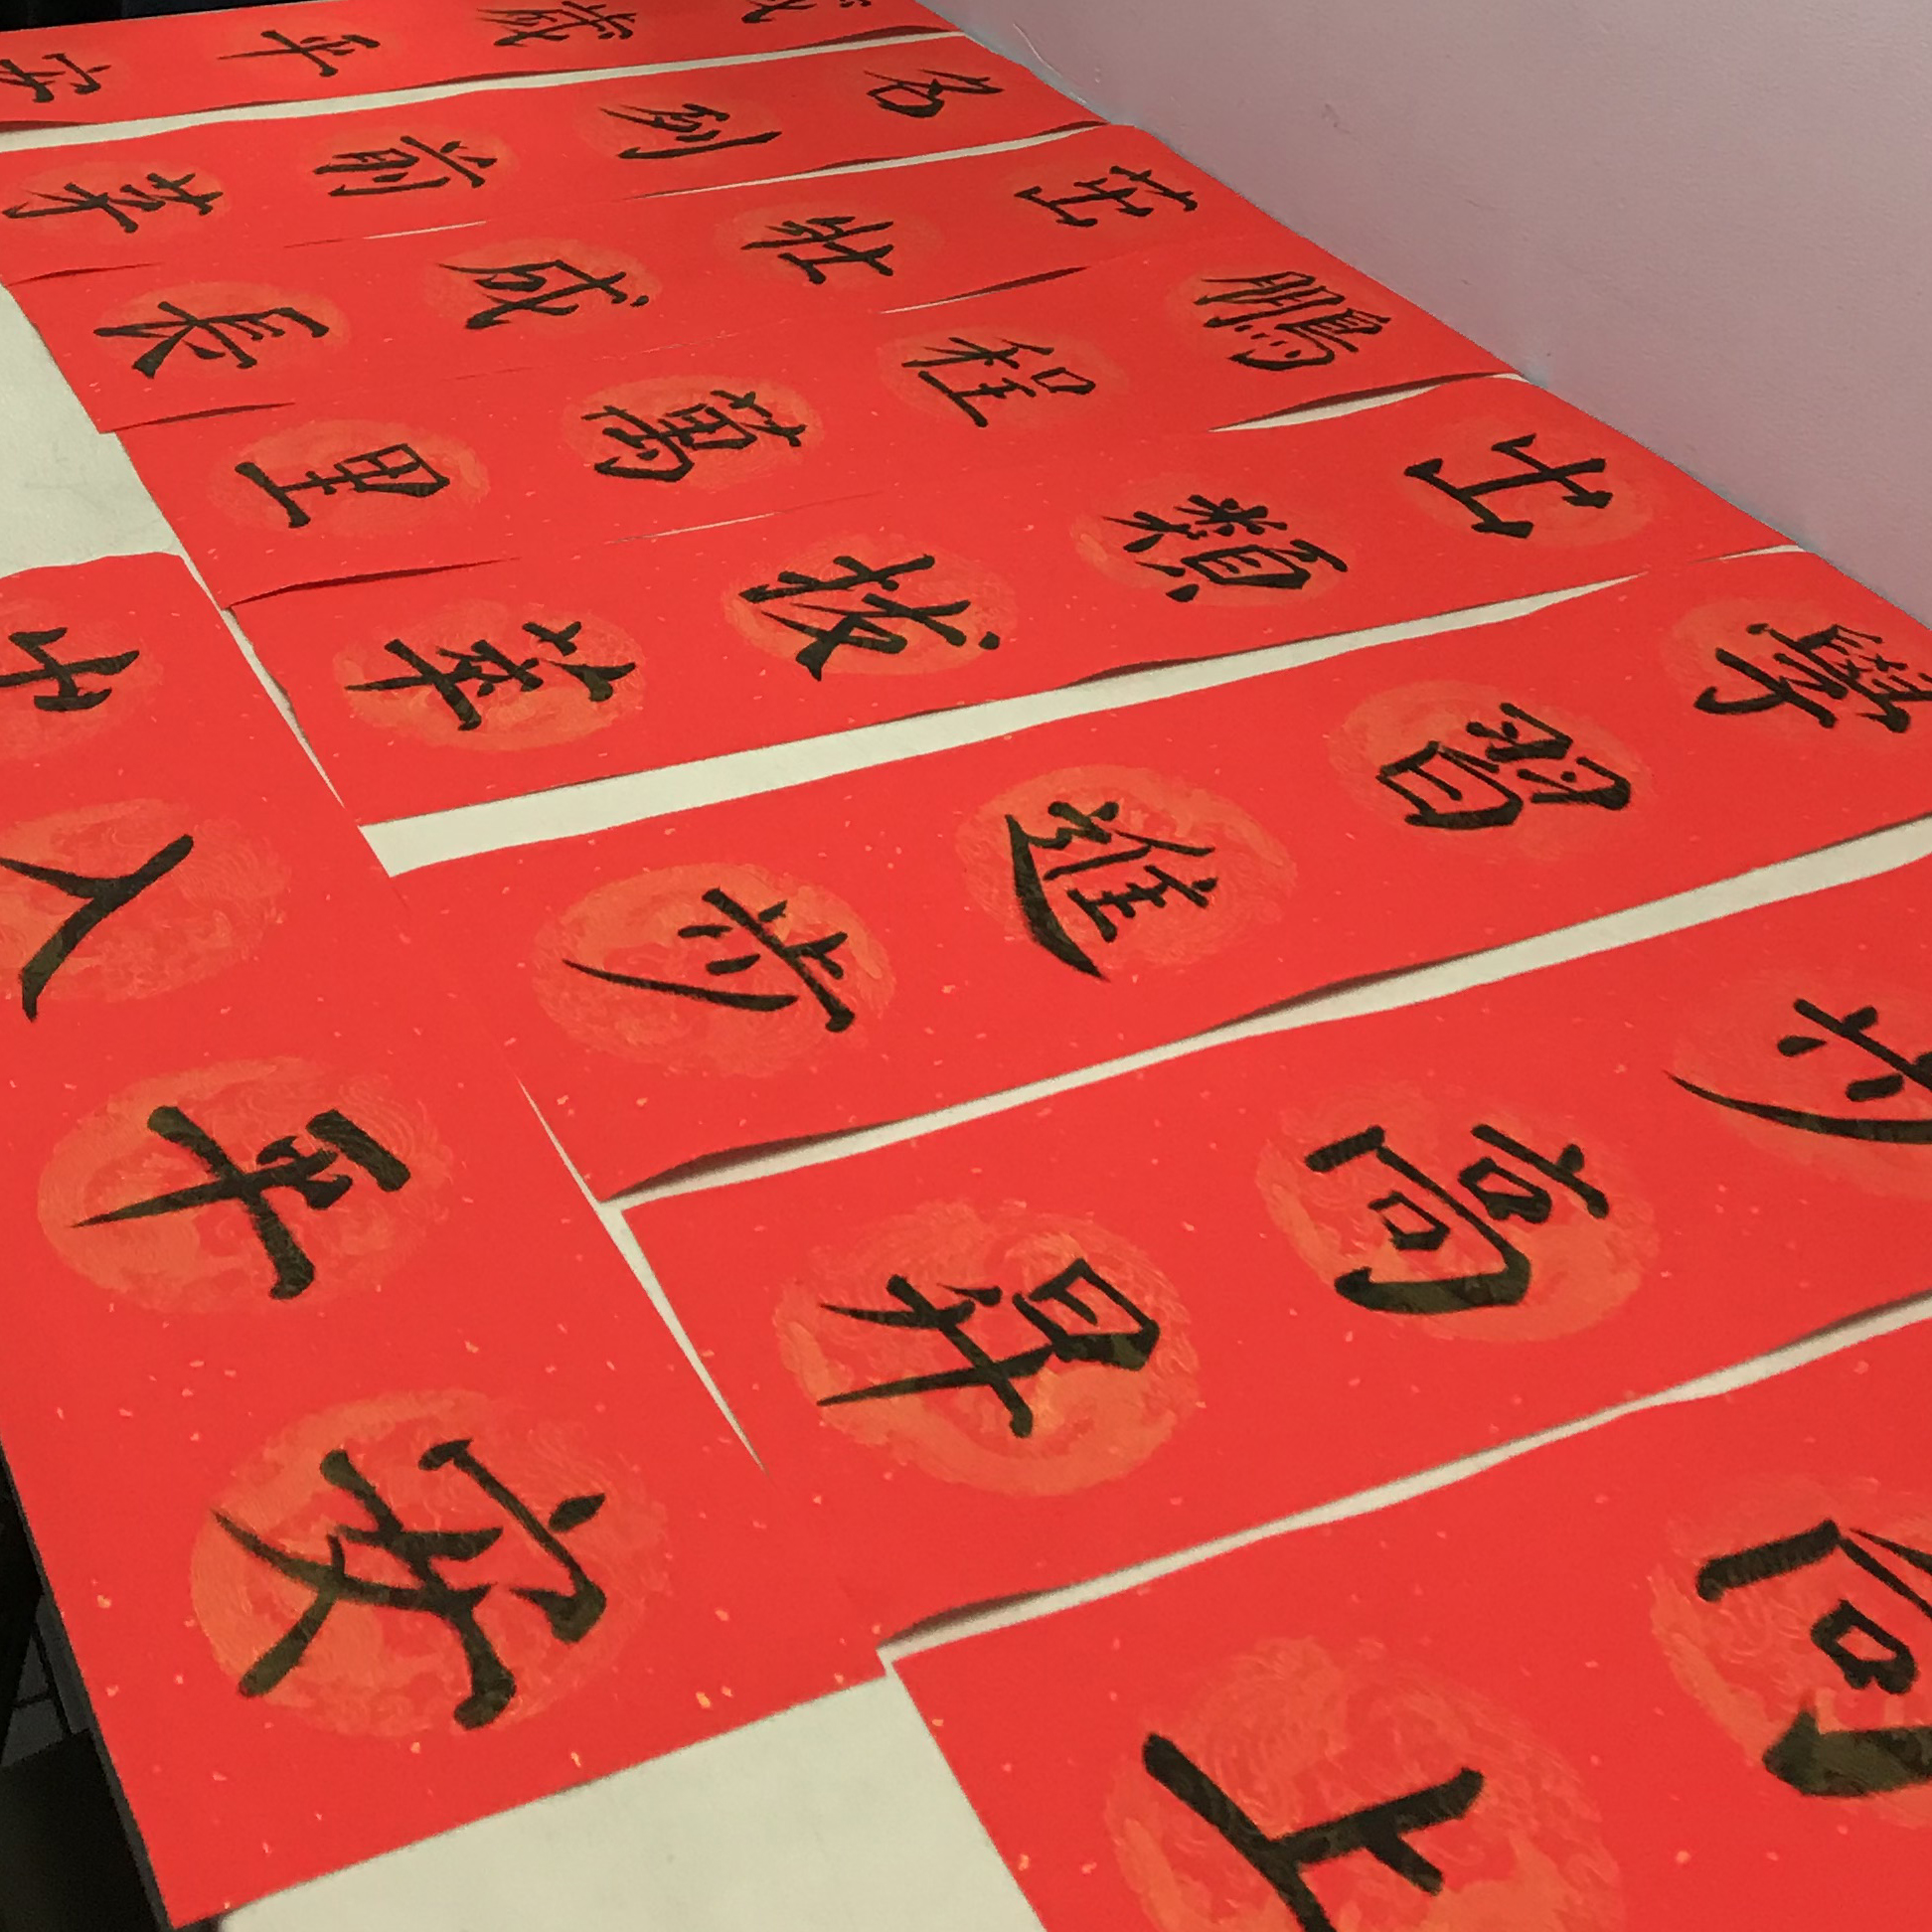 歲歲平安
名列前茅
茁壯成長
鵬程萬里
出類拔萃
學習進步
步高昇
向上
出入平安